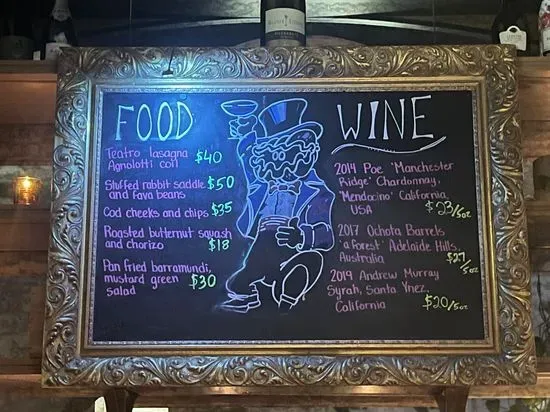 FOOD
Teatro lasagna
Agnolotti corn $40
Stuffed rabbit saddle
and fava beans $50
Cod cheeks and chips $35
Roasted butternut squash
and chorizo $18
Pan fried barramundi,
mustard green
salad $30
WINE
2014 Poe 'Manchester
Ridge' Chardonnay,
'Mendocino' California
USA $23/5oz
2017 Ochota Barrels
'a Forest' Adelaide Hills,
Australia $27/5oz
2019 Andrew Murray
Syrah, Santa Ynez,
California $20/5oz